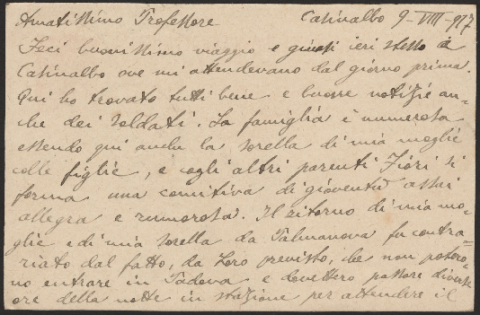 Amatissimo Professore Casinalbo 9-VIII-917
Feci buonissimo viaggio e giunsi ieri stesso a
Casinalbo ove mi attendevano dal giorno prima.
Qui ho trovato tutti bene e buone notizie an-
che dei soldati. La famiglia è numerosa
essendo qui anche la sorella di mia moglie
colle figlie, e cogli altri parenti Fiori si
forma una comitiva di gioventù assai
allegra e rumorosa. Il ritorno di mia mo-
glie e di mia sorella da Palmanova fu contra-
riato dal fatto, da Loro previsto, che non potero-
no entrare in Padova e dovettero passare diverse
ore della notte in stazione per attendere il